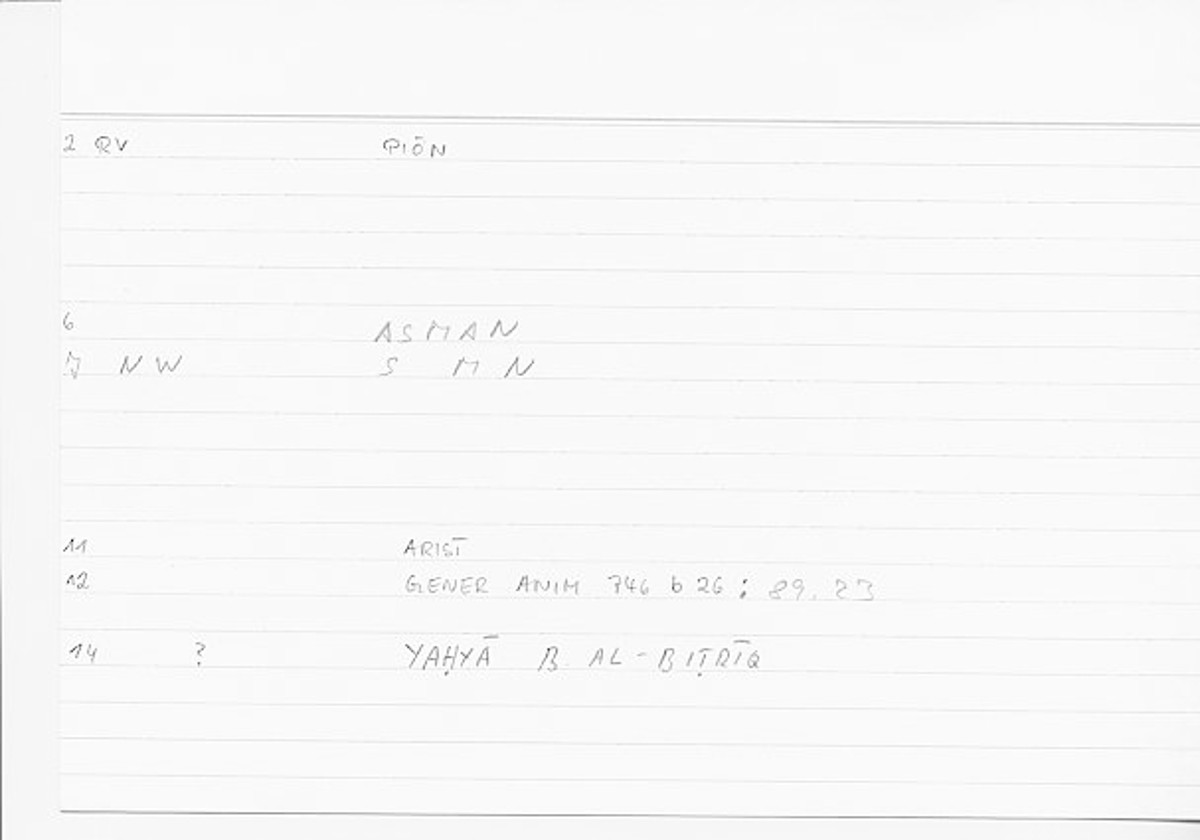 2 QV PIŌN
6 ASMAN
N NW S M N
11 ARIST
12 GENER ANIM 746 b 26 : 89.23
14 ? YAḤYĀ B AL-BIṬRĪQ